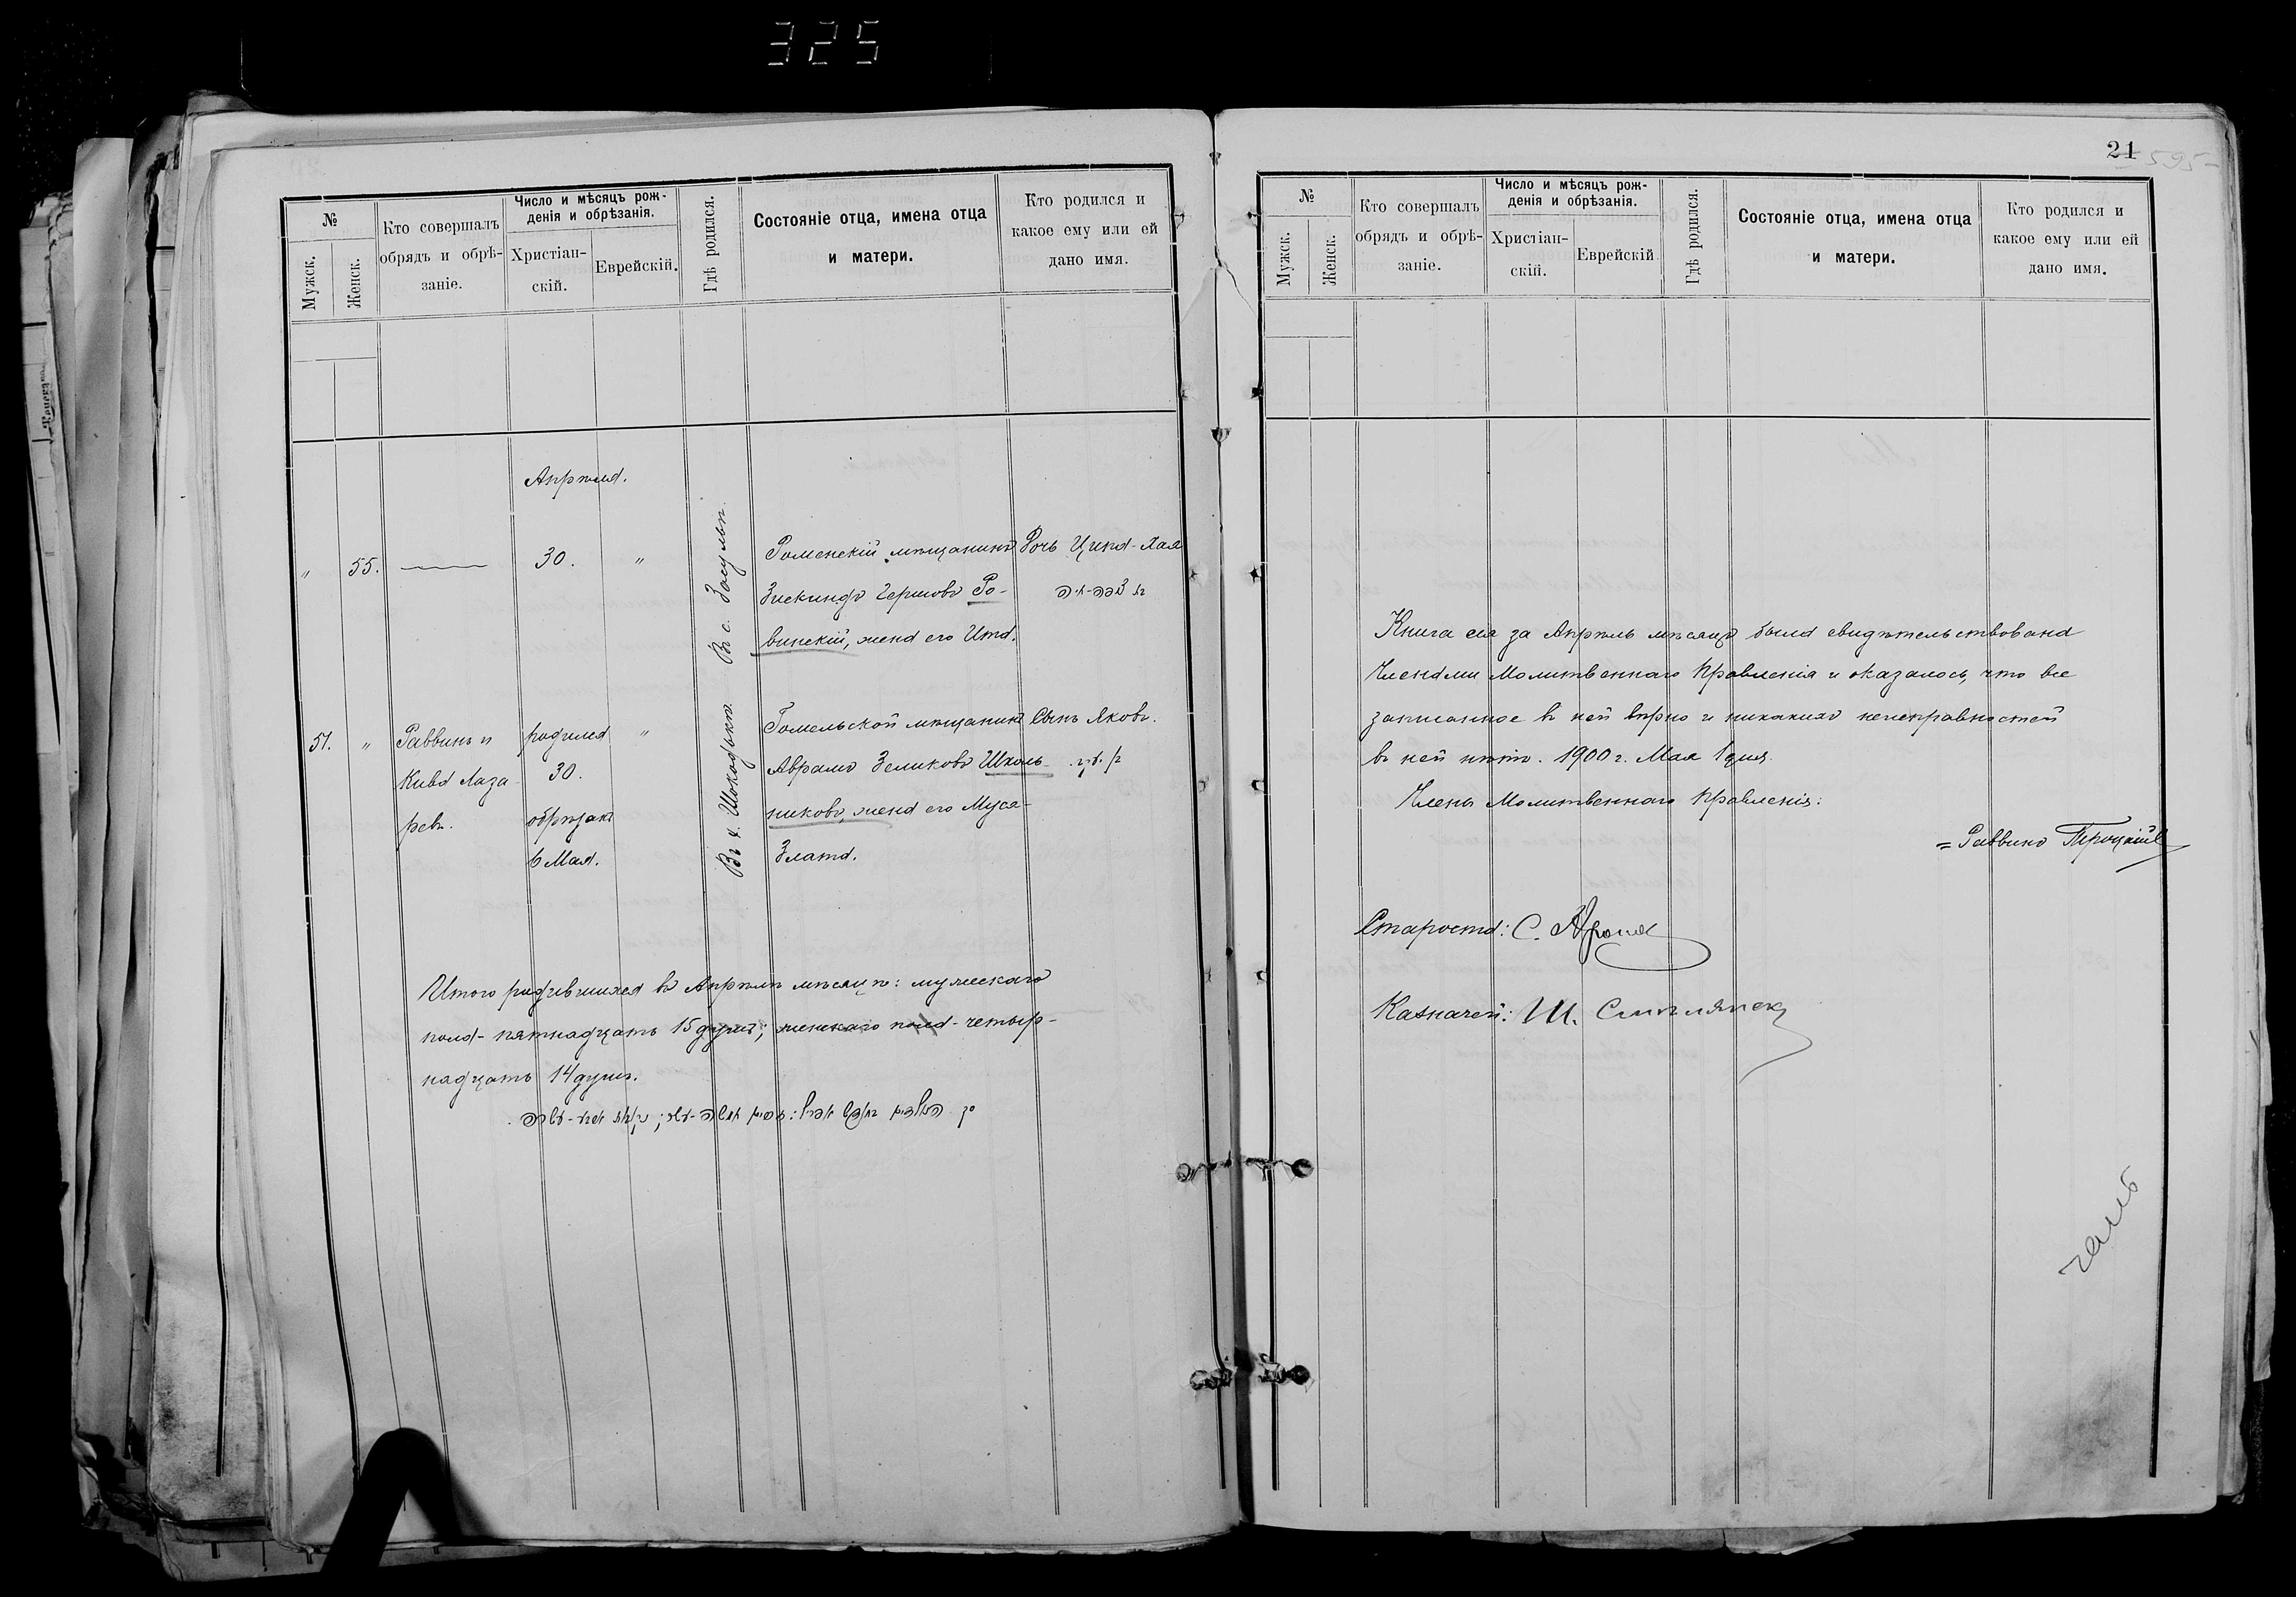 325
№
Мужск.
Женск.
Кто совершалъ
обрядъ и обрѣ-
заніе.
Число и мѣсяцъ рож-
денія и обрѣзанія.
Христіан-
скій.
Еврейскій.
Гдѣ родился.
Состояніе отца, имена отца
и матери.
Кто родился и
какое ему или ей
дано имя.
Апрѣля.
" 55. — 30. "
Въ с. Засульѣ.
Роменскій мѣщанинъ
Зискиндъ Гершовъ Ро-
винскій, жена его Ита.
Дочь Ципа-Хая
51. "
Раввинъ и
Кива Лаза-
ревъ.
родился "
30.
обрѣзанъ
6 Мая.
Гомельской мѣщанинъ
Аврамъ Зеликовъ Школь-
никовъ, жена его Муся-
Злата.
Сынъ Яковъ.
יעקב
Итого родившихся въ Апрѣлѣ мѣсяцѣ: мужескаго
пола- пятнадцать 15 душъ; женскаго пола- четыр-
надцать 14 душъ.
21 595-
№
Мужск.
Женск.
Кто совершалъ
обрядъ и обрѣ-
заніе.
Число и мѣсяцъ рож-
денія и обрѣзанія.
Христіан-
скій.
Еврейскій
Гдѣ родился.
Состояніе отца, имена отца
и матери.
Кто родился и
какое ему или ей
дано имя.
Книга сія за Апрѣль мѣсяцъ была свидѣтельствована
Членами Молитвеннаго Правленія и оказалось, что все
записанное въ ней вѣрно и никакихъ неисправностей
въ ней нѣтъ. 1900 г. Мая 1 дня.
Члены Молитвеннаго Правленія:
= Раввинъ Троцкій
Староста: С.
Казначей: Ш.